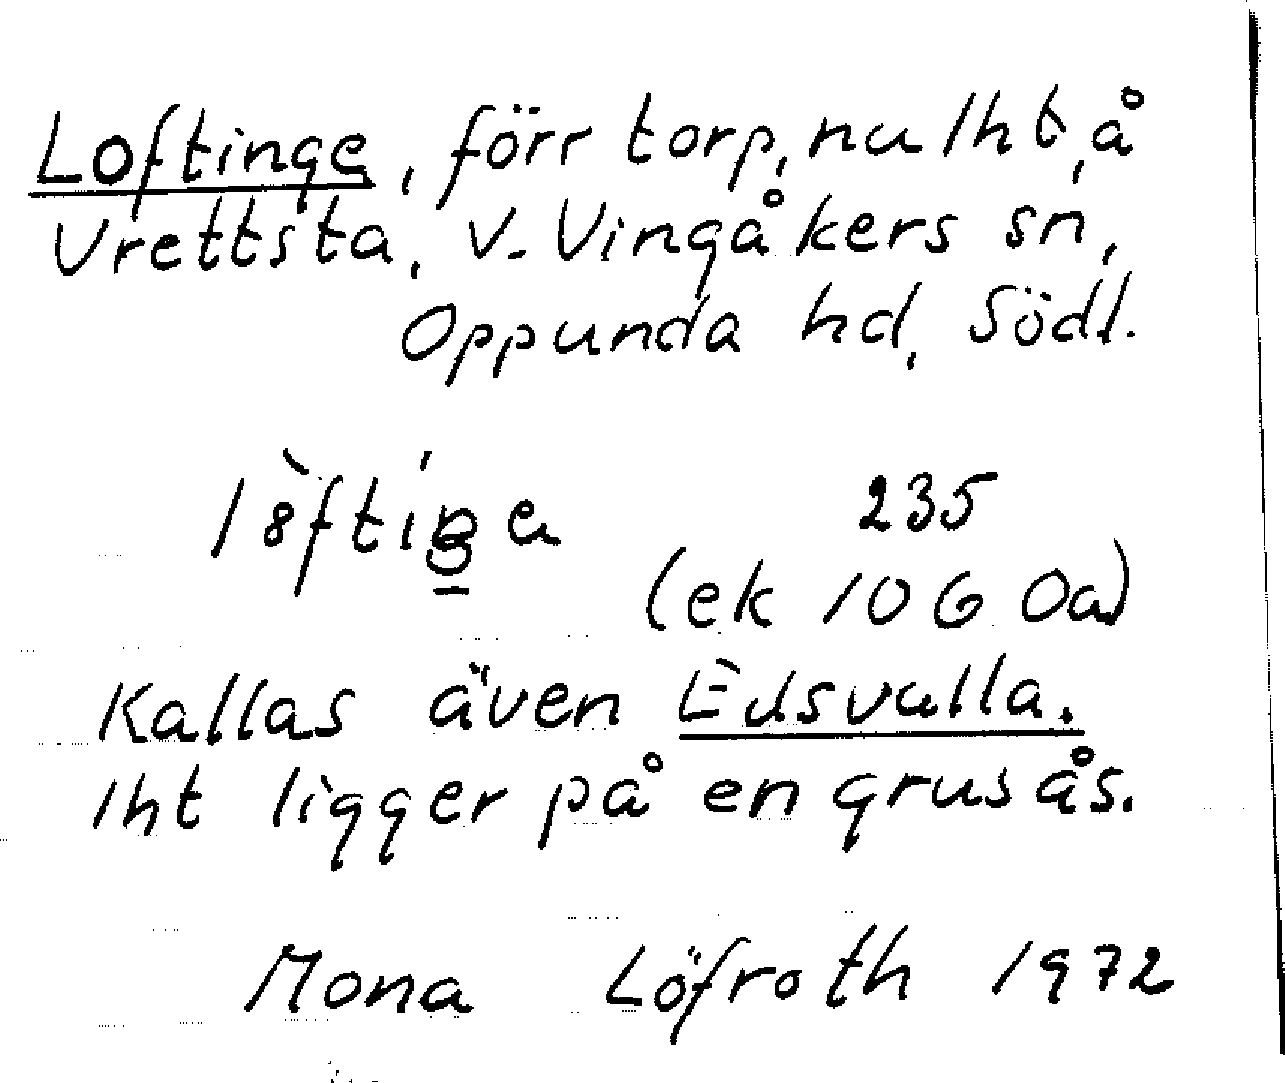 Loftinge, förr torp, nu lht, å
Vrettsta, V. Vingåkers sn,
Oppunda hd, Södl.
235
(ek 10G 0a)
Kallas även Edsvalla.
lht ligger på en grusås.
Mona Löfroth 1972